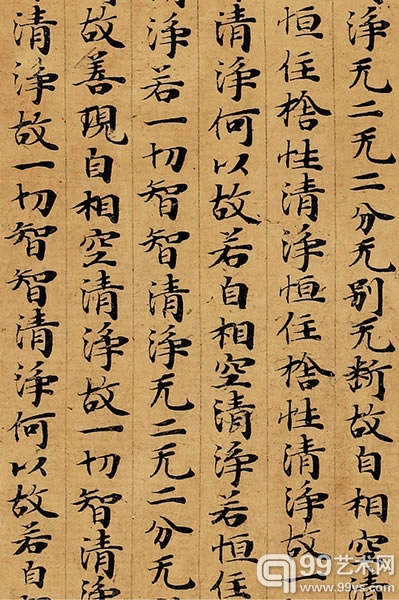 淨无二无二分无別无断故自相空清
恒住捨性清淨恒住捨性清淨故一
清淨何以故若自相空清淨若恒住
淨若一切智智清淨无二无二分无
故善現自相空清淨故一切智清淨
清淨故一切智智清淨何以故若自
99艺术网
www.99ys.com